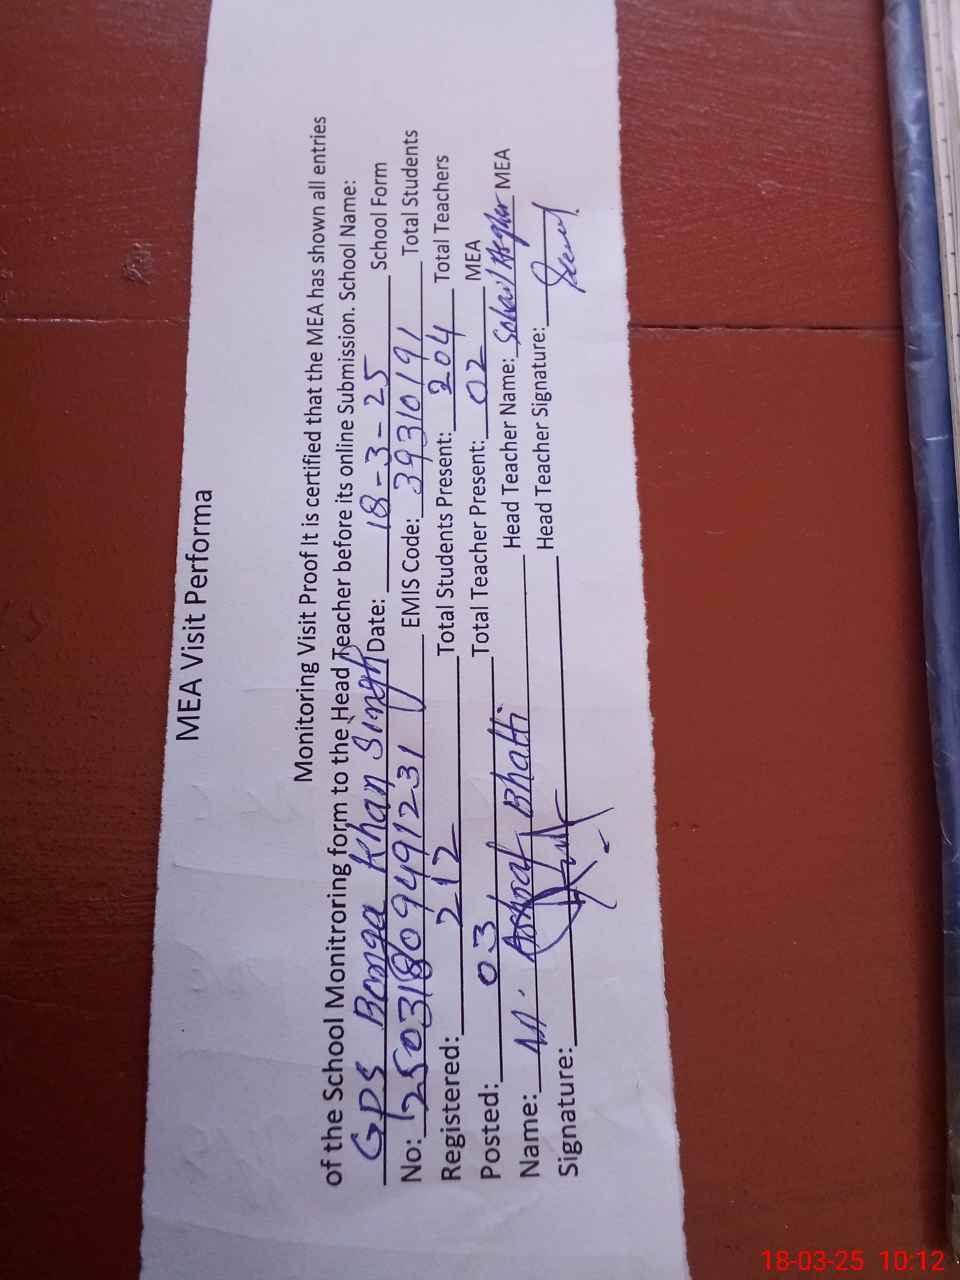 MEA Visit Performa
Monitoring Visit Proof It is certified that the MEA has shown all entries
of the School Monitroring form to the Head Teacher before its online Submission. School Name:
GPS Bonga Khan Singh Date: 18-3-25 School Form
No: 25031809491231 EMIS Code: 39310191 Total Students
Registered: 212 Total Students Present: 204 Total Teachers
Posted: 03 Total Teacher Present: 02 MEA
Name: M. Ashraf Bhatti Head Teacher Name: Sohail Asghar MEA
Signature: Head Teacher Signature:
18-03-25 10:12